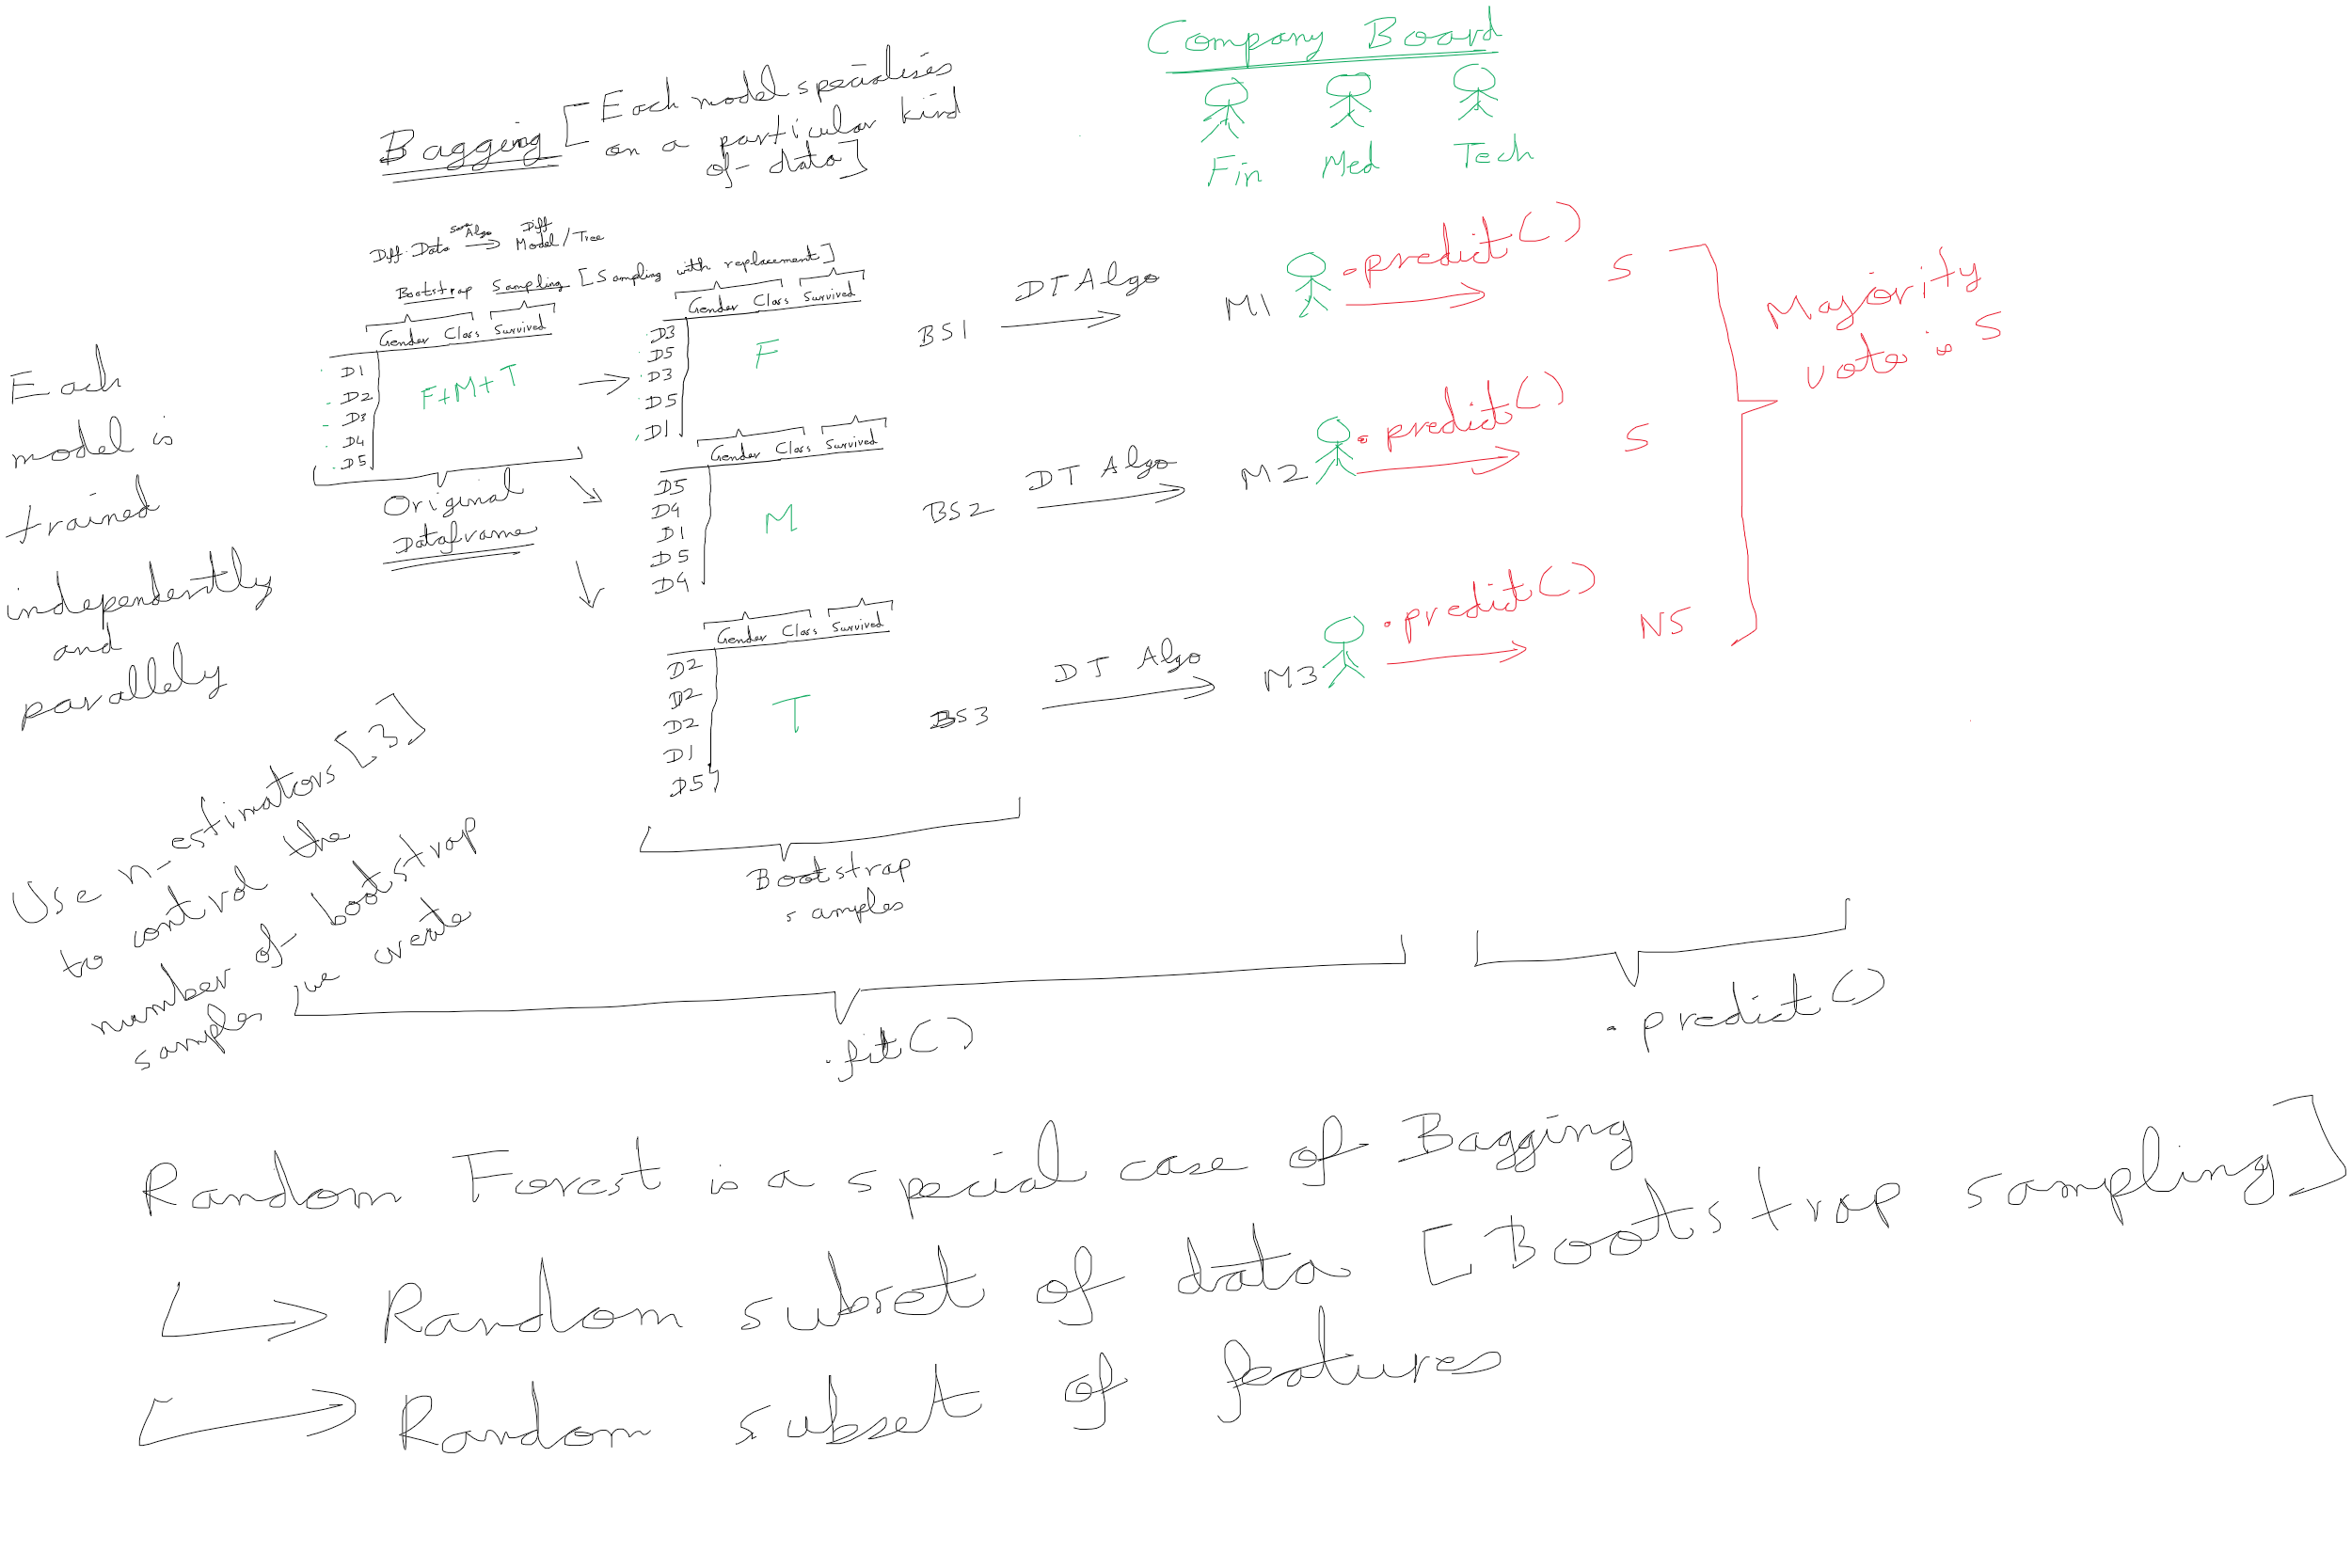 Company Board
Fin Med Tech
Bagging [Each model specialises
on a particular kind
of data]
Diff Data Same Algo Diff Model/Tree
Bootstrap Sampling [Sampling with replacement]
Gender Class Survived
D1
D2
D3
D4
D5
F+M+T
Original
Dataframe
Gender Class Survived
D3
D5
D3
D5
D1
F
BS1
DT Algo
M1
.predict()
S
Gender Class Survived
D5
D4
D1
D5
D4
M
BS2
DT Algo
M2
.predict()
S
Gender Class Survived
D2
D2
D2
D1
D5
T
BS3
DT Algo
M3
.predict()
NS
Majority
vote is S
Each
model is
trained
independently
and
parallely
Use n_estimators [3]
to control the
number of bootstrap
samples we create
Bootstrap
samples
.fit()
.predict()
Random Forest is a special case of Bagging
Random subset of data [Bootstrap sampling]
Random subset of features